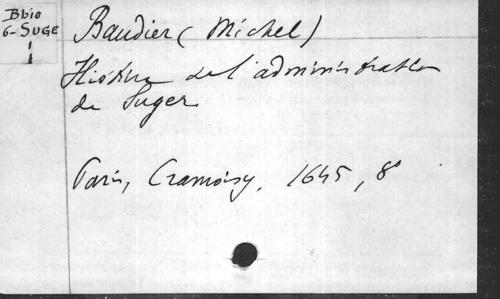 Bbio
6-SUGE
1
Baudier (Michel)
Histoire de l'administration
de Suger
Paris, Cramoisy, 1645, 8°